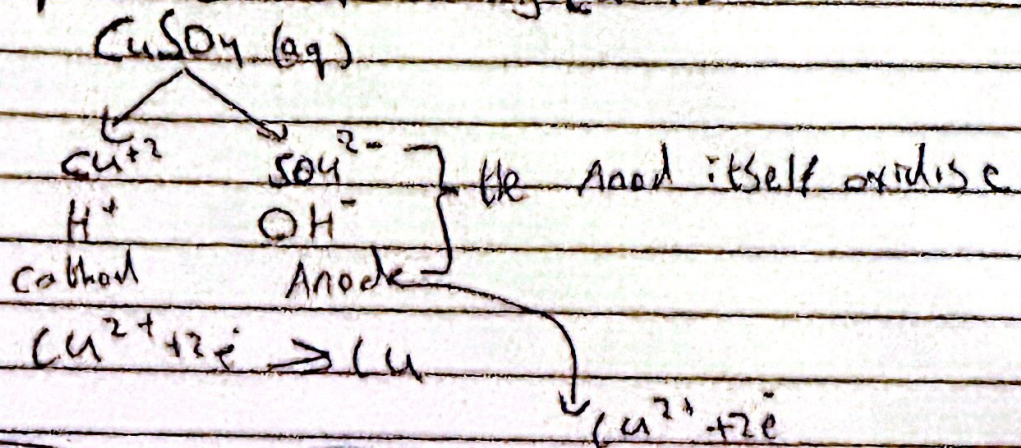 CuSO4 (aq)
Cu+2 SO4 2- the Anod itself oxidise
H+ OH-
Cathod Anode
Cu2+ +2e- → Cu
Cu2+ +2e-